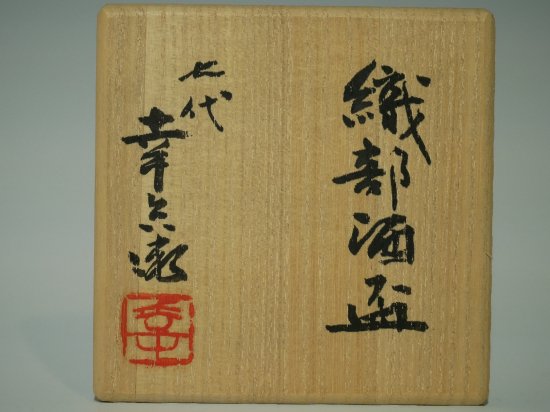 織部酒盃
七代
幸兵衛
幸